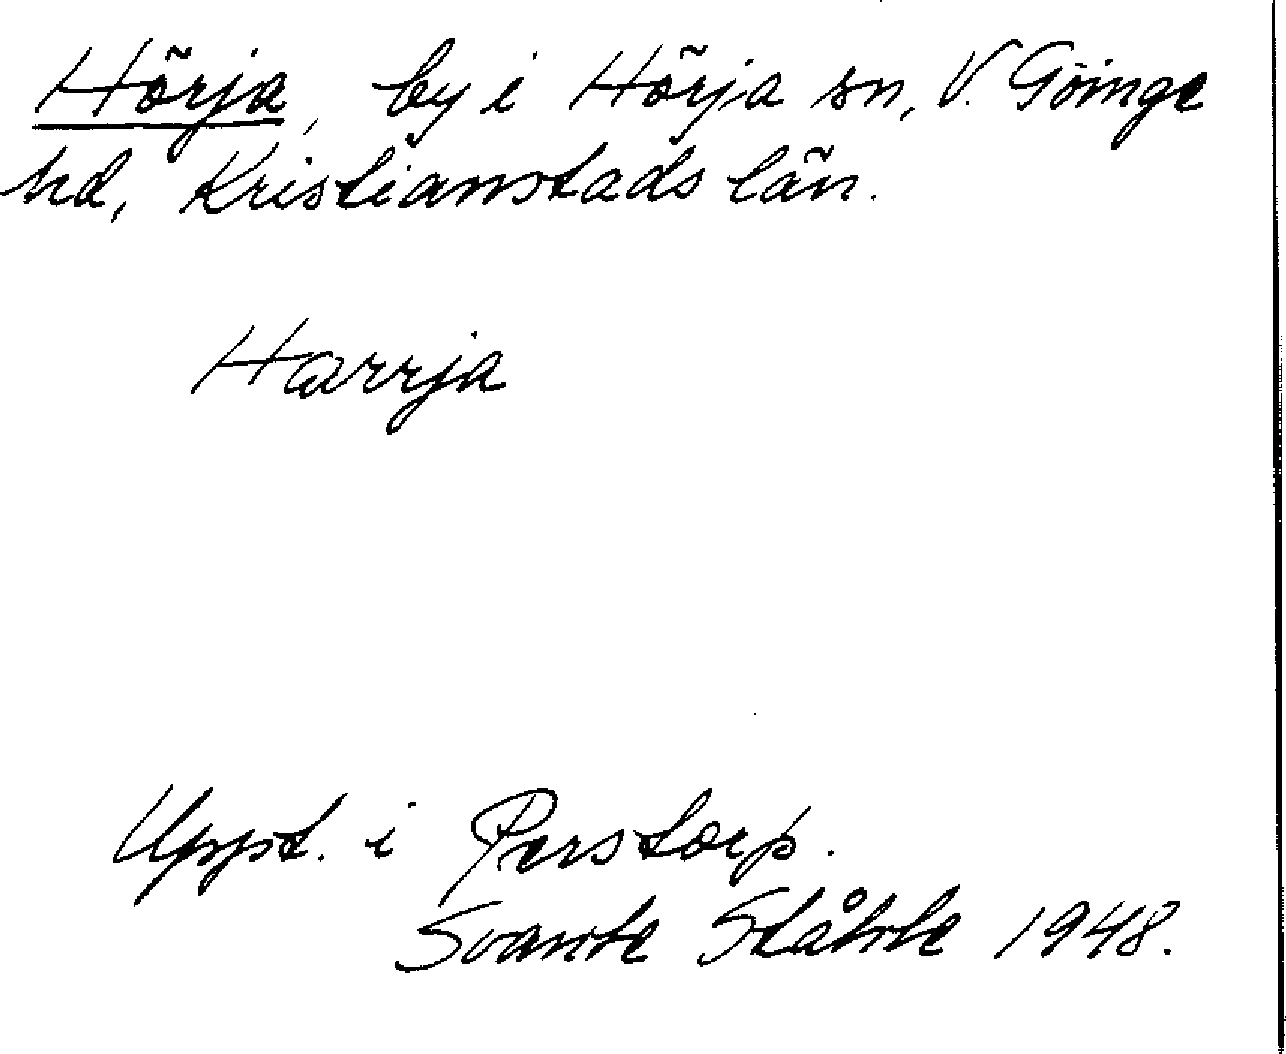 Hörja, by i Hörja sn, V. Göinge
hd, Kristianstads län.
Harrja
Uppt. i Perstorp.
Svante Ståhle 1948.